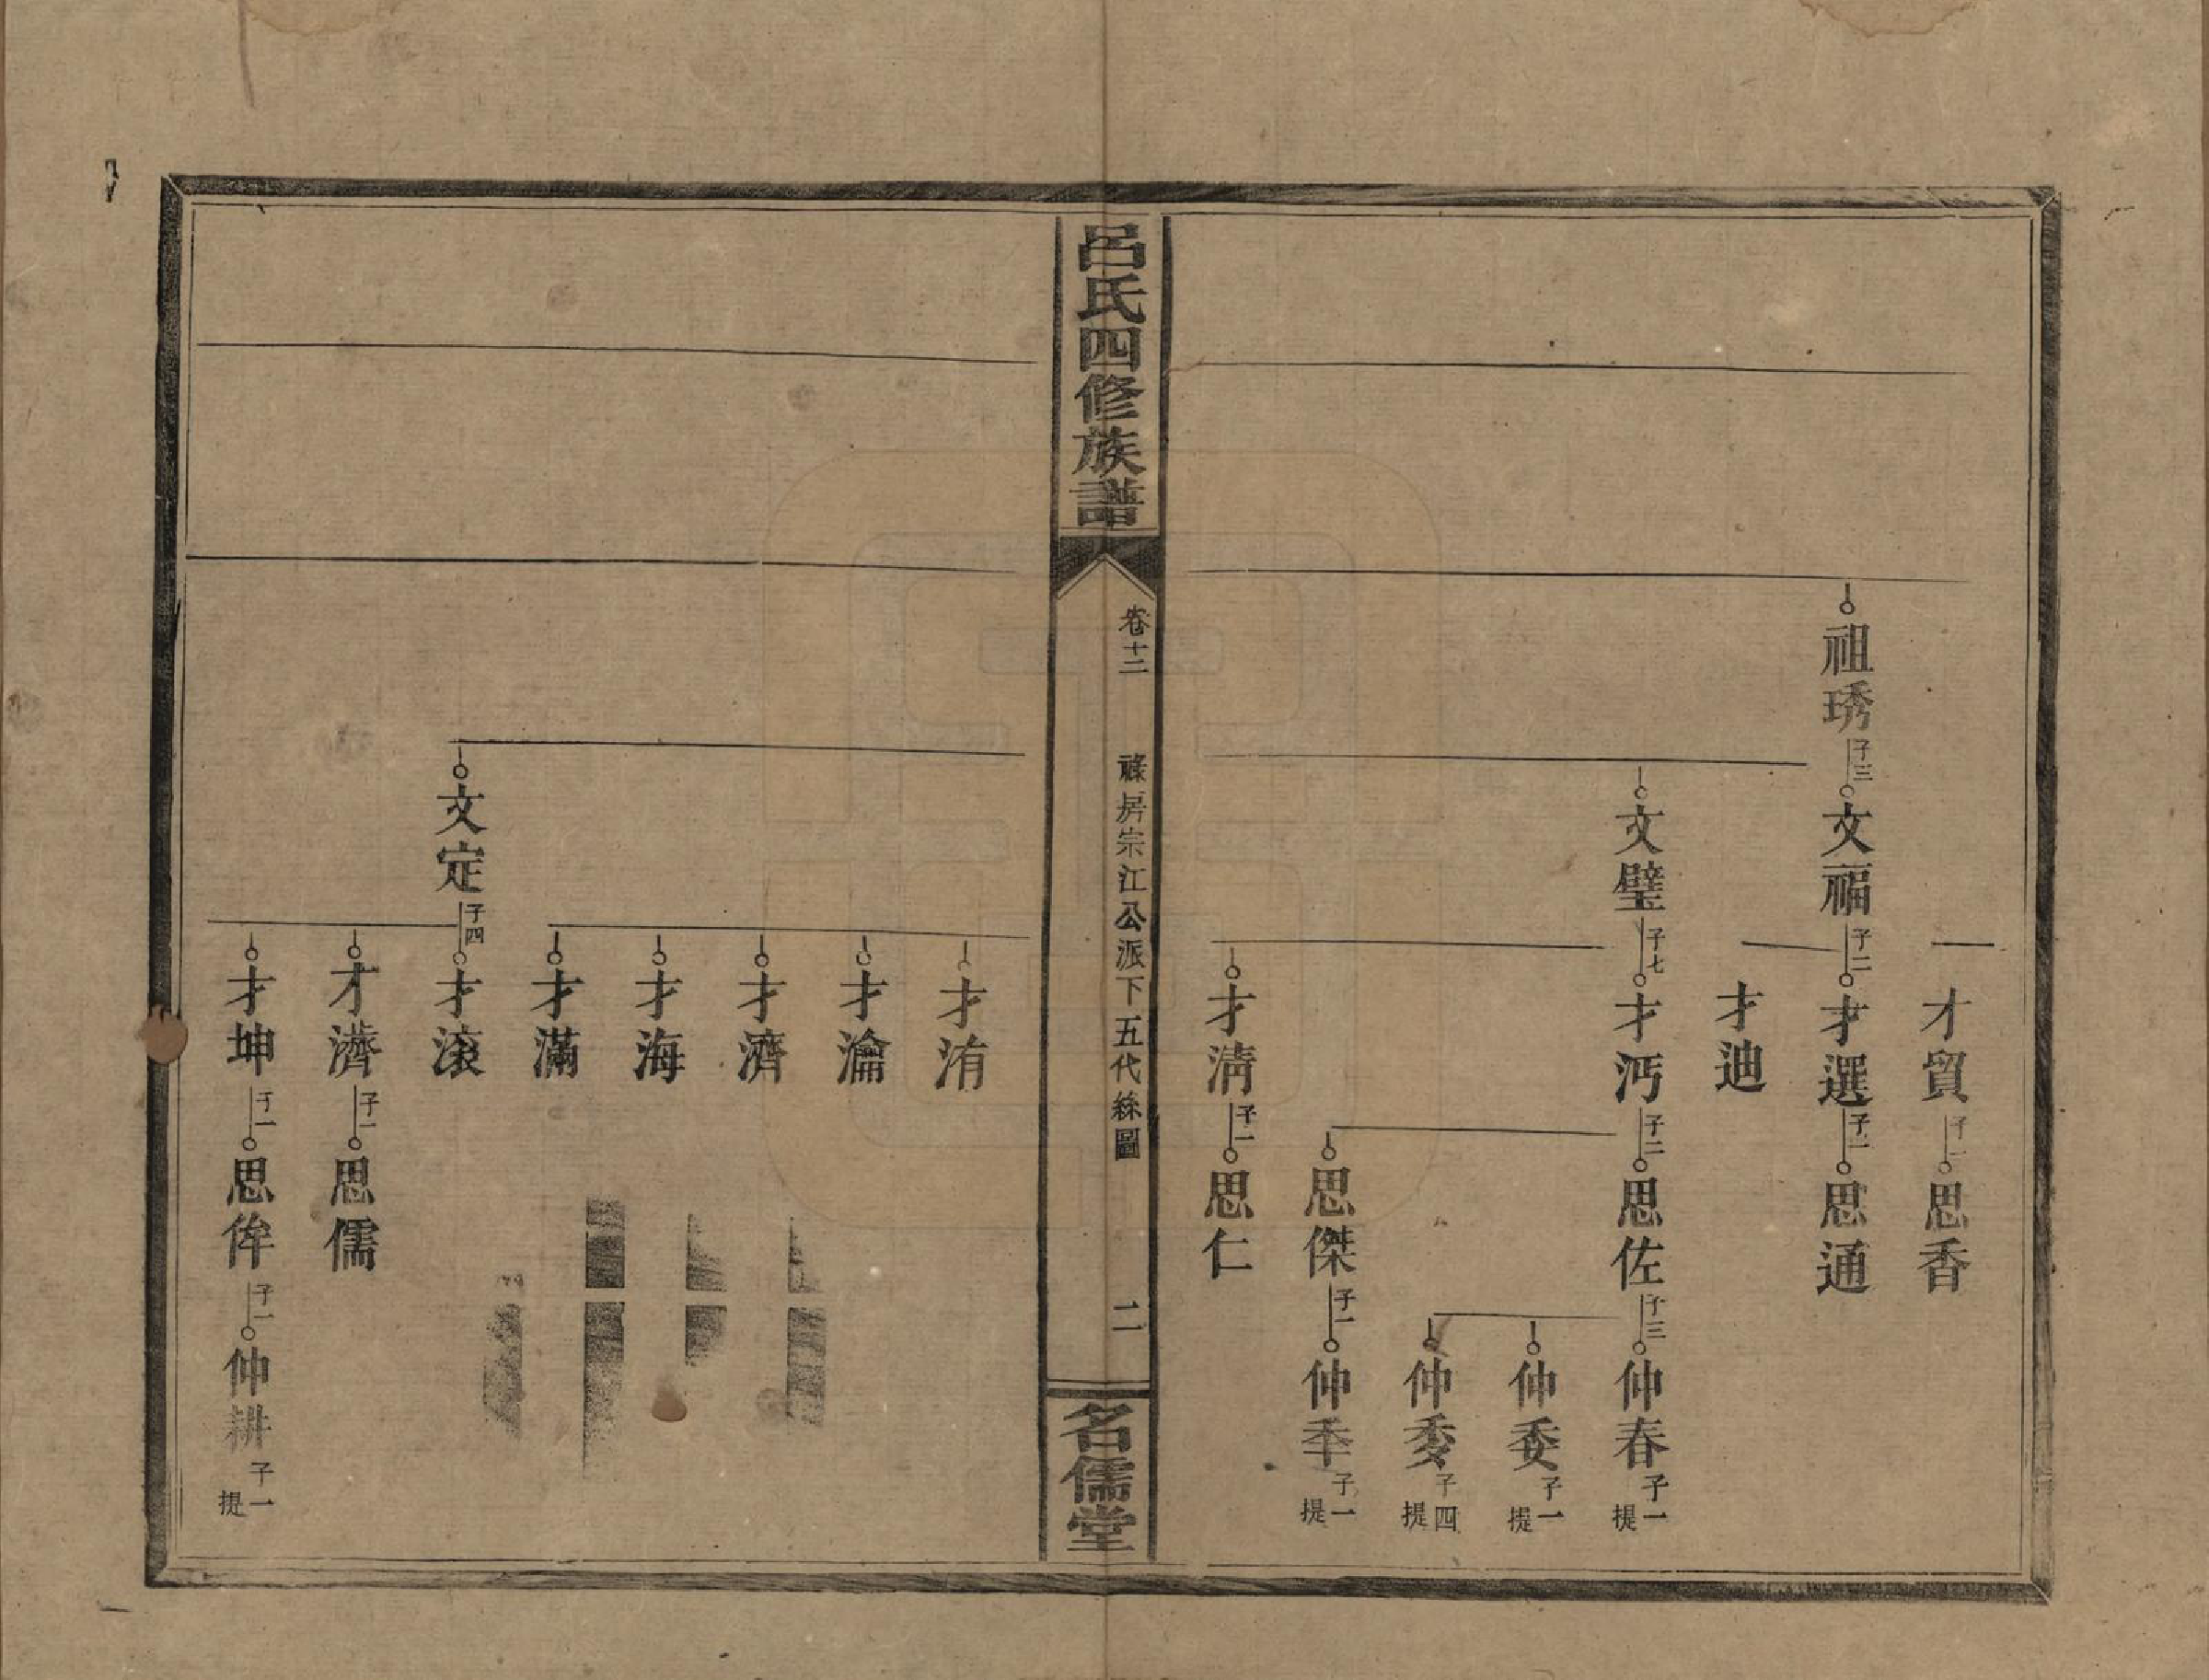 才貿 子一 思香
祖琇 子三 文福 子二 才選 子一 思通
才迪
文璧 子七 才沔 子二 思佐 子三 仲春 子一 提
仲委 子一 提
仲 子四 提
思傑 子一 仲季 子一 提
才淸 子一 思仁
呂氏四修族譜
卷十二
祿房宗江公派下五代絲圖
二
名儒堂
才洧
才瀹
才濟
才海
才滿
文定 子四 才滚
才濟 子一 思儒
才坤 子一 思侔 子一 仲耕 子一 提